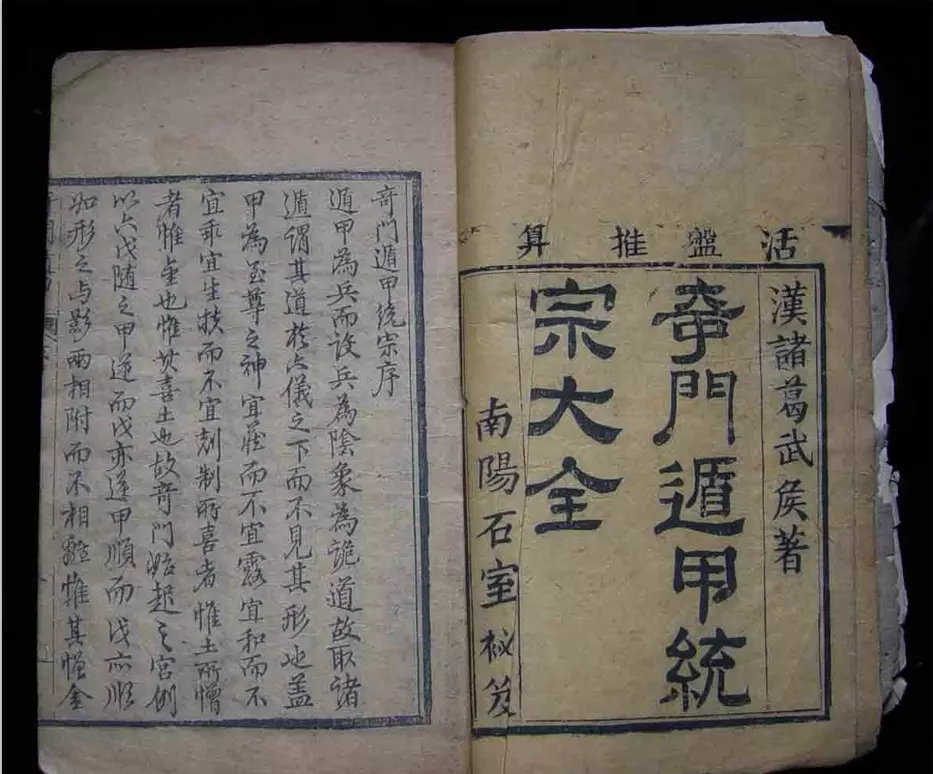 活盤推算
漢諸葛武侯著
竒門遁甲統
宗大全
南陽石室祕笈
竒門遁甲统宗序
遁甲為兵而設兵為陰象為詭道故取諸
遁謂其道於六儀之下而不見其形也盖
甲為至尊之神宜藏而不宜露宜和而不
宜乖宜生扶而不宜剋制所喜者惟土所憎
者惟金也惟其喜土也故奇門始起之宮例
以六戊随之甲逆而戊亦逆甲順而戊亦順
如形之与影两相附而不相離惟其憎金